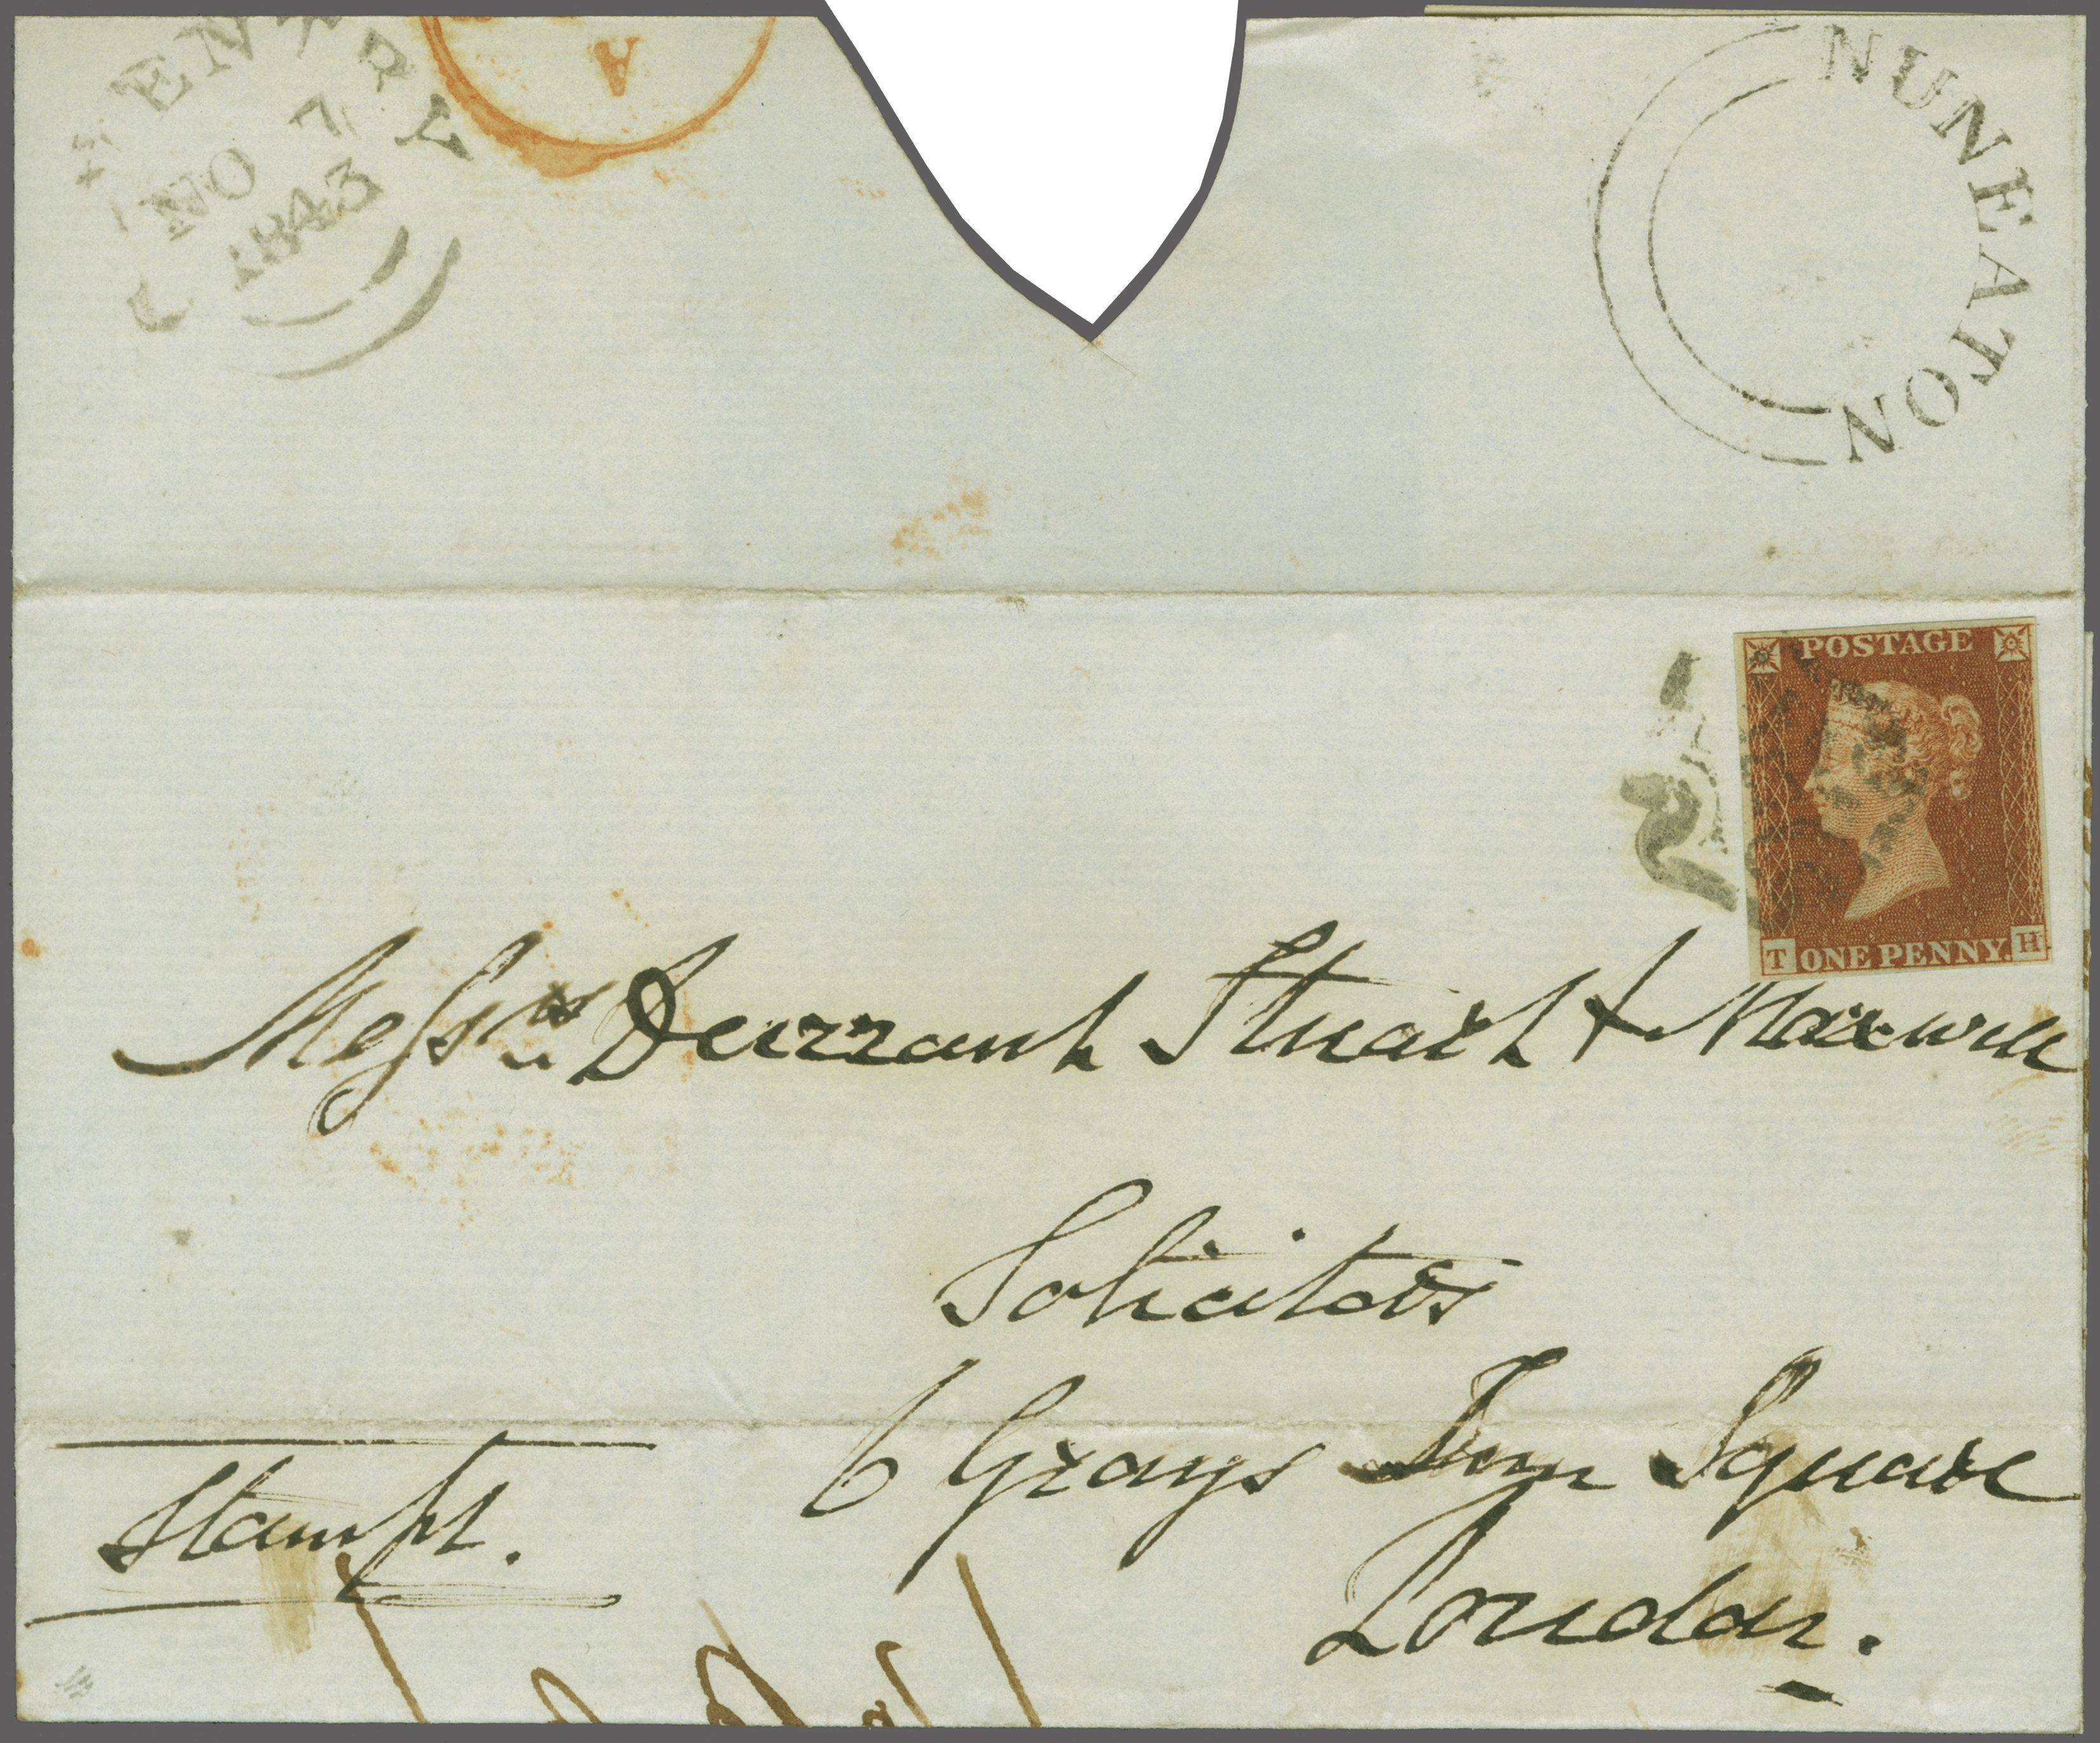 ENTRY
NO 7
1843
A
NUNEATON
POSTAGE
T ONE PENNY. H
Messrs Durrant Stuart & Maxwell
Solicitors
6 Grays Inn Square
London.
Stampt.